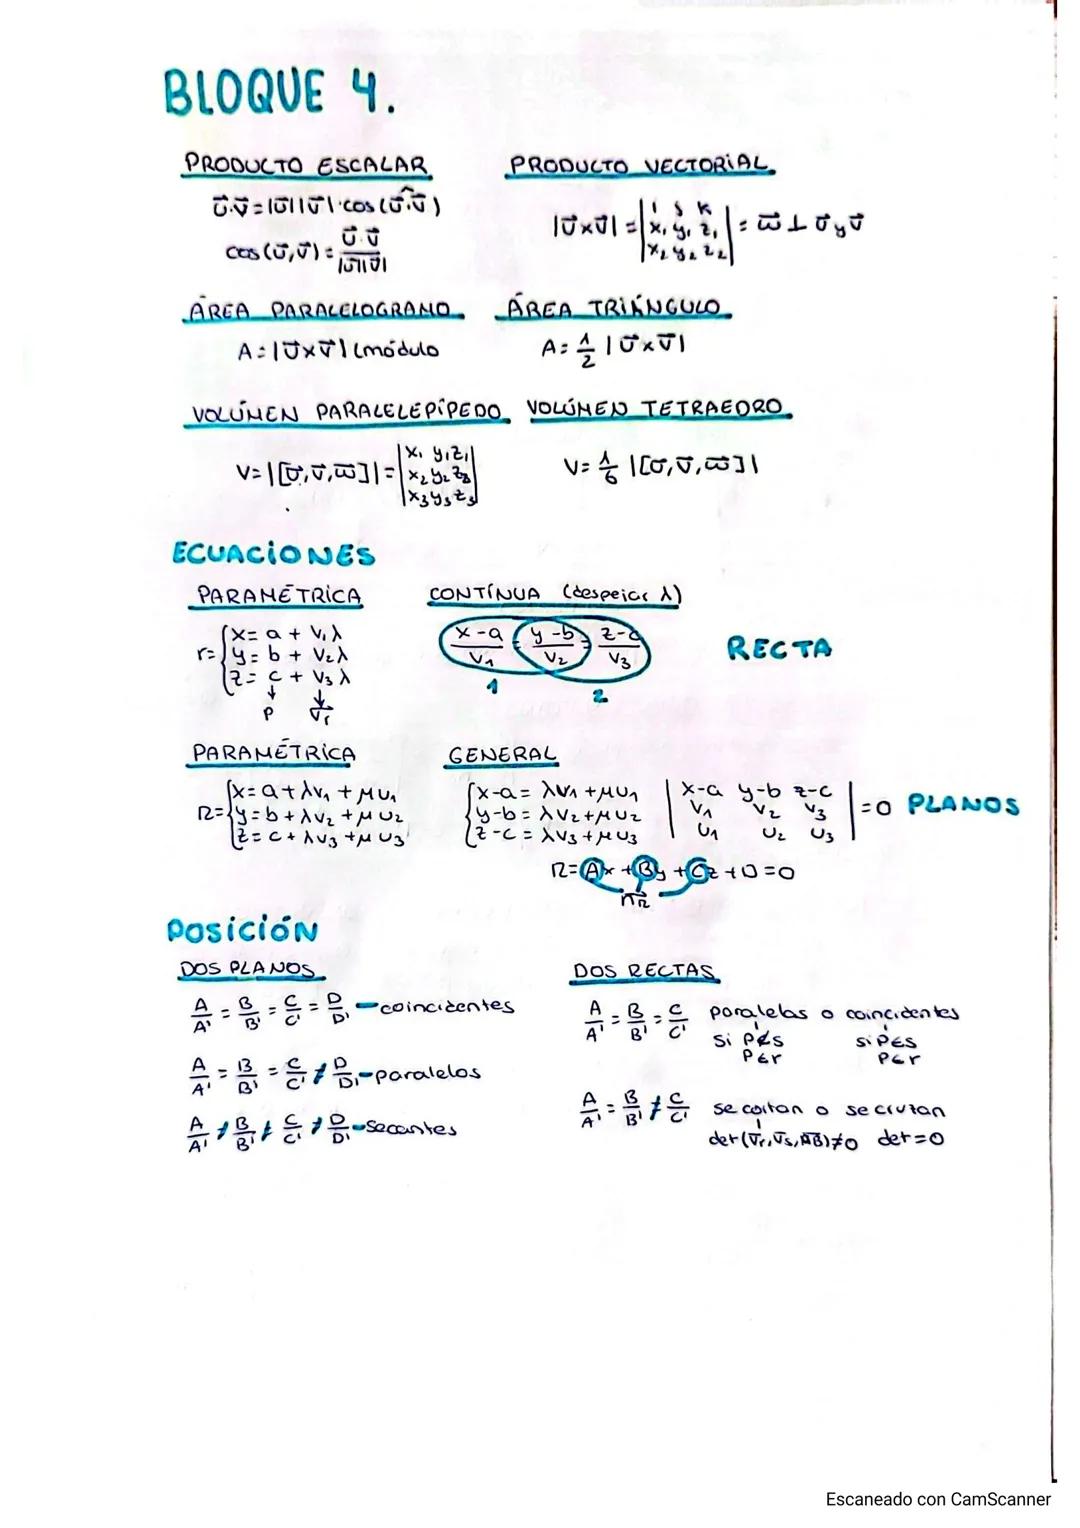 BLOQUE 4.
PRODUCTO ESCALAR
u⃗·v⃗ = |u⃗||v⃗|·cos(u⃗·v⃗)
cos(u⃗,v⃗) = u⃗·v⃗ / |u⃗||v⃗|
PRODUCTO VECTORIAL
|u⃗xv⃗| = | i j k | x₁ y₁ z₁ | x₂ y₂ z₂ | = w⃗ ⊥ u⃗ y v⃗
ÁREA PARALELOGRAMO
A = |u⃗xv⃗| (módulo
ÁREA TRIÁNGULO
A = 1/2 |u⃗xv⃗|
VOLÚMEN PARALELEPÍPEDO
V = |[u⃗,v⃗,w⃗]| = | x₁ y₁ z₁ | x₂ y₂ z₂ | x₃ y₃ z₃ |
VOLÚMEN TETRAEDRO
V = 1/6 |[u⃗,v⃗,w⃗]|
ECUACIONES
PARAMÉTRICA
r = { x = a + v₁λ
y = b + v₂λ
z = c + v₃λ
↓ ↓
P v⃗r
CONTÍNUA (despejar λ)
x-a/v₁ = y-b/v₂ = z-c/v₃
1 2
RECTA
PARAMÉTRICA
π = { x = a + λv₁ + μu₁
y = b + λv₂ + μu₂
z = c + λv₃ + μu₃
GENERAL
{ x-a = λv₁ + μu₁
y-b = λv₂ + μu₂
z-c = λv₃ + μu₃
| x-a y-b z-c | v₁ v₂ v₃ | u₁ u₂ u₃ | = 0 PLANOS
π = Ax + By + Cz + D = 0
n⃗π
POSICIÓN
DOS PLANOS
A/A' = B/B' = C/C' = D/D' - coincidentes
A/A' = B/B' = C/C' ≠ D/D' - paralelos
A/A' ≠ B/B' ≠ C/C' ≠ D/D' - secantes
DOS RECTAS
A/A' = B/B' = C/C' paralelas o coincidentes
si P∉s si P∈s
P∈r P∈r
A/A' = B/B' ≠ C/C' se cortan o se cruzan
det(v⃗r,v⃗s,AB)≠0 det=0
Escaneado con CamScanner